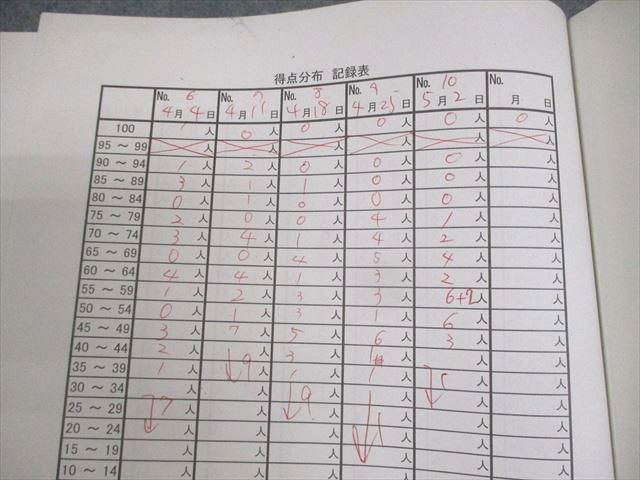 得点分布 記録表
No. 6 No. 7 No. 8 No. 9 No. 10 No.
4月 4日 4月 11日 4月 18日 4月 25日 5月 2日 月 日
100 1人 0人 0人 0人 0人 0人
95 ～ 99 人 人 人 人 人 人
90 ～ 94 1人 2人 0人 0人 0人 人
85 ～ 89 3人 1人 1人 0人 0人 人
80 ～ 84 0人 1人 0人 0人 0人 人
75 ～ 79 2人 0人 0人 4人 1人 人
70 ～ 74 3人 4人 1人 4人 2人 人
65 ～ 69 0人 0人 4人 5人 4人 人
60 ～ 64 4人 4人 1人 3人 2人 人
55 ～ 59 1人 2人 3人 3人 6+2人 人
50 ～ 54 0人 1人 3人 1人 6人 人
45 ～ 49 3人 7人 5人 6人 3人 人
40 ～ 44 2人 人 3人 1人 人 人
35 ～ 39 1人 9人 1人 1人 人 人
30 ～ 34 人 人 9人 人 人 人
25 ～ 29 7人 人 人 人 人 人
20 ～ 24 人 人 人 人 人 人
15 ～ 19 人 人 人 人 人 人
10 ～ 14 人 人 人 人 人 人